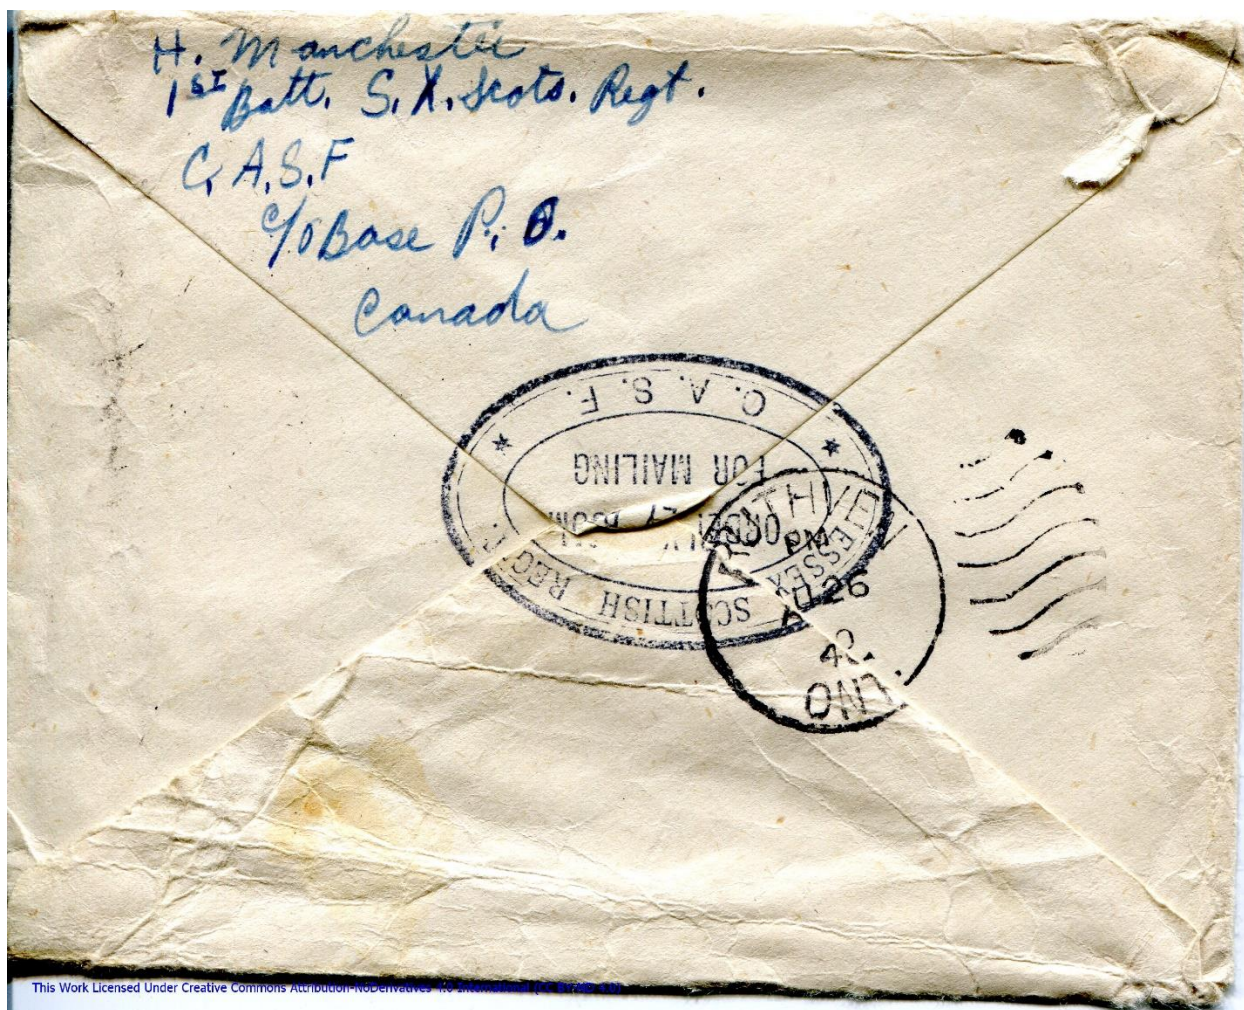 H. Manchester
1ST Batt. S. X. Scots. Regt.
C. A. S. F
c/o Base P. O.
Canada
C. A. S. F.
FOR MAILING
ORDERLY ROOM
ESSEX SCOTTISH REGT.
RUTHVEN
PM
AU 26
40
ONT.
This Work Licensed Under Creative Commons Attribution-NoDerivatives 4.0 International (CC BY-ND 4.0)